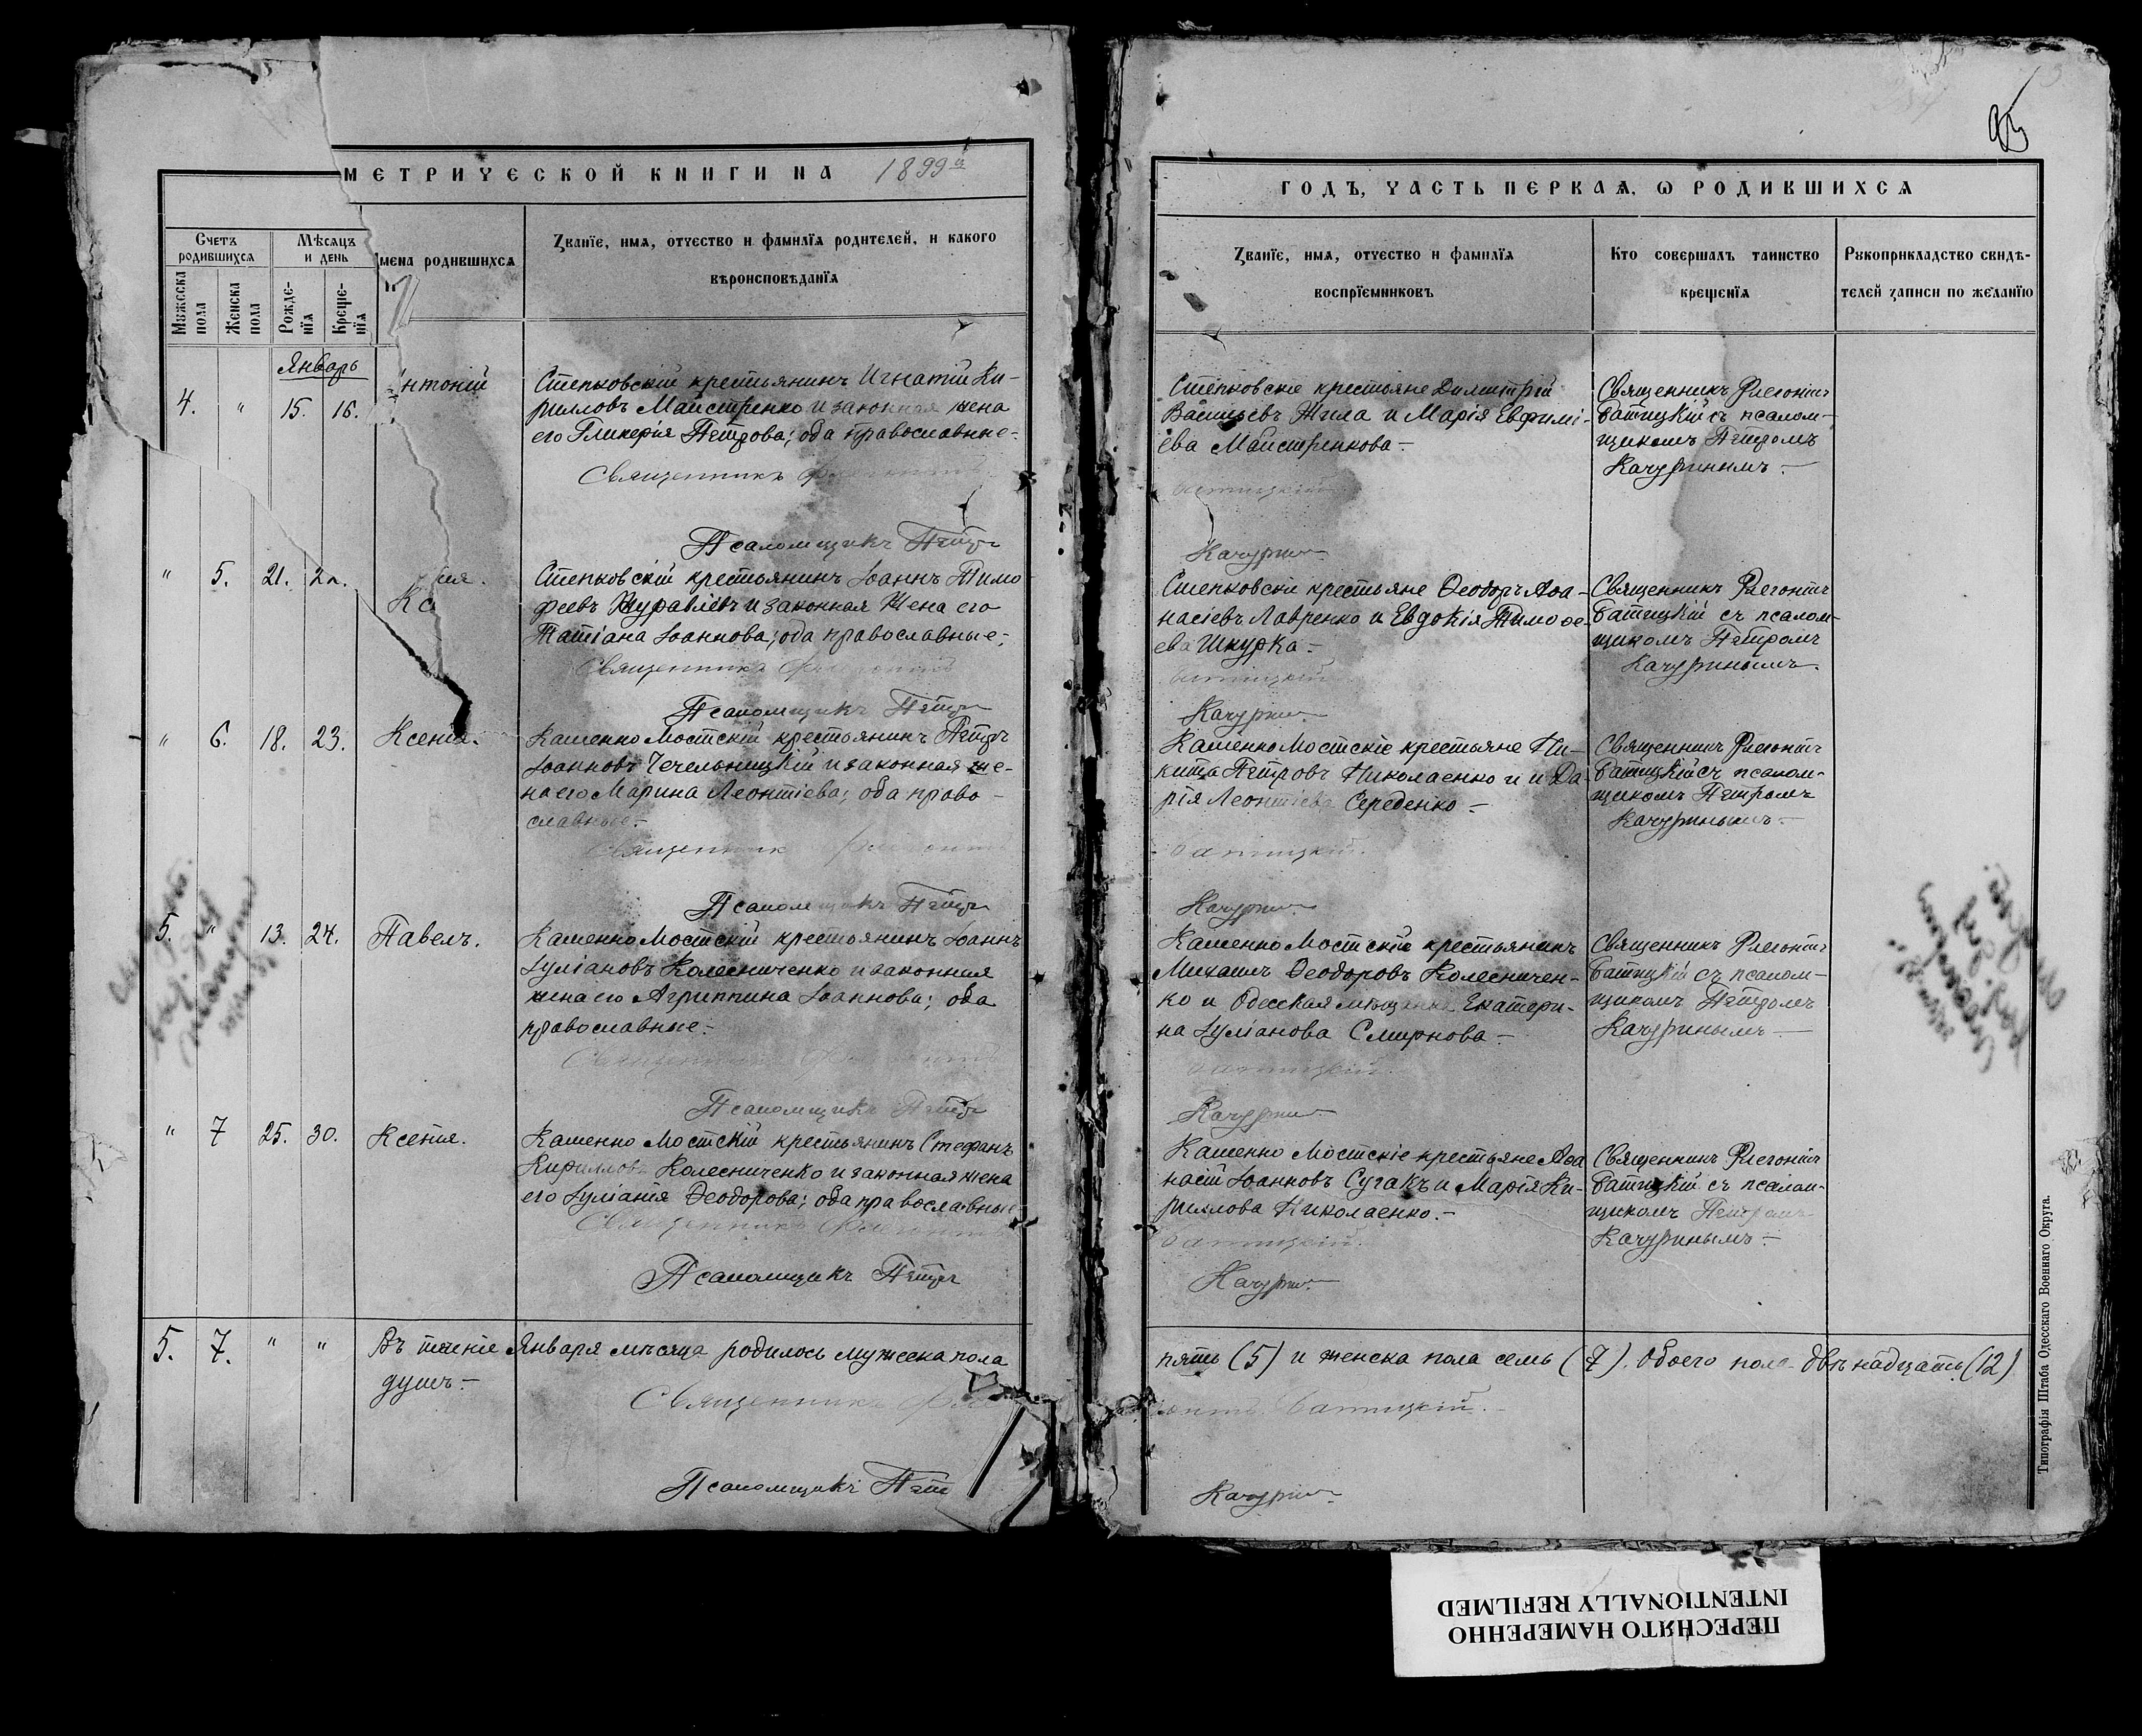 МЕТРИЧЕСКОЙ КНИГИ НА 1899й
ГОДЪ, ЧАСТЬ ПЕРВАЯ, Ѡ РОДИВШИХСЯ
Счетъ родившихся
Мѣсяцъ и день
Мужеска пола
Женска пола
Рожде-нія
Креще-нія
мена родившихся
Званїе, имя, отчество и фамилїя родителей, и какого
вѣроисповѣданїя
Званїе, имя, отчество и фамилїя
воспрїемниковъ
Кто совершалъ таинство
крещенїя
Рукоприкладство свидѣ-
телей записи по желанїю
Январь
4. " 15. 16.
нтоній
Степковскій крестьянинъ Игнатій Ки-
рилловъ Майстренко и законная жена
его Гликерія Петрова; оба православные.-
Священникъ
Псаломщикъ Петръ
Степковскіе крестьяне Димитрій
Васильевъ Жила и Марія Евфимі-
ева Майстренкова.-
Качурин
Священникъ Флегонтъ
Батицкій съ псалом-
щикомъ Петромъ
Качуринымъ.-
" 5. 21. 2
Степковскій крестьянинъ Іоаннъ Тимо
феевъ Журавлевъ и законная жена его
Татіана Іоаннова; оба православные.-
Священникъ Флегонтъ
Псаломщикъ Петръ
Степковскіе крестьяне Ѳеодоръ Аѳа-
насіевъ Лавренко и Евдокія Тимоѳе-
ева Шкурка.-
Батицкій
Качурин
Священникъ Флегонтъ
Батицкій съ псалом-
щикомъ Петромъ
Качуринымъ.
" 6. 18. 23. Ксенія.
Каменно Мостскій крестьянинъ Петръ
Іоанновъ Чечельницкій и законная же-
на его Марина Леонтіева; оба право-
славные.-
Священник Флегонтъ
Псаломщикъ Петръ
Каменно Мостскіе крестьяне Ни-
кита Петровъ Николаенко и и Да-
рія Леонтіева Середенко.-
Батицкій.
Качурин
Священникъ Флегонтъ
Батицкій съ псалом-
щикомъ Петромъ
Качуринымъ.-
5. " 13. 24. Павелъ.
Каменно Мостскій крестьянинъ Іоаннъ
Іуліановъ Колесниченко и законная
жена его Агриппина Іоаннова; оба
православные.-
Священник Флегонтъ
Псаломщикъ Петръ
Каменно Мостскіе крестьянинъ
Михаилъ Ѳеодоровъ Колесничен-
ко и Одесская мѣщанка Екатери-
на Іуліанова Смирнова.-
Батицкій.
Качурин
Священникъ Флегонтъ
Батицкій съ псалом-
щикомъ Петромъ
Качуринымъ.-
" 7 25. 30. Ксенія.
Каменно Мостскій крестьянинъ Стефанъ
Кирилловъ Колесниченко и законная жена
его Іуліанія Ѳеодорова; оба православные
Священникъ Флегонтъ
Псаломщикъ Петръ
Каменно Мостскіе крестьяне Аѳа
насій Іоанновъ Сугакъ и Марія Ки-
риллова Николаенко.-
Батицкій.
Качурин
Священникъ Флегонтъ
Батицкій съ псалом-
щикомъ Петромъ
Качуринымъ.-
5. 7. " " Въ теченіе Января мѣсяца родилось мужеска пола пять (5) и женска пола семь (7). Обоего пола двѣнадцать (12)
душъ.-
Священникъ Батицкій.-
Псаломщикъ Петр Качурин
Типографія Штаба Одесскаго Военнаго Округа.
ПЕРЕСНЯТО НАМЕРЕННО
INTENTIONALLY REFILMED